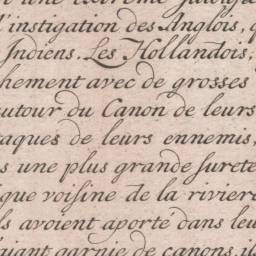 l'instigation des Anglois, q
Indiens. Les Hollandois,
hement avec de grosses
autour du Canon de leurs
taques de leurs ennemis,
s une plus grande sureté
que voisine de la riviere
ls avoient aporté dans leu
aiant garnie de canons, il